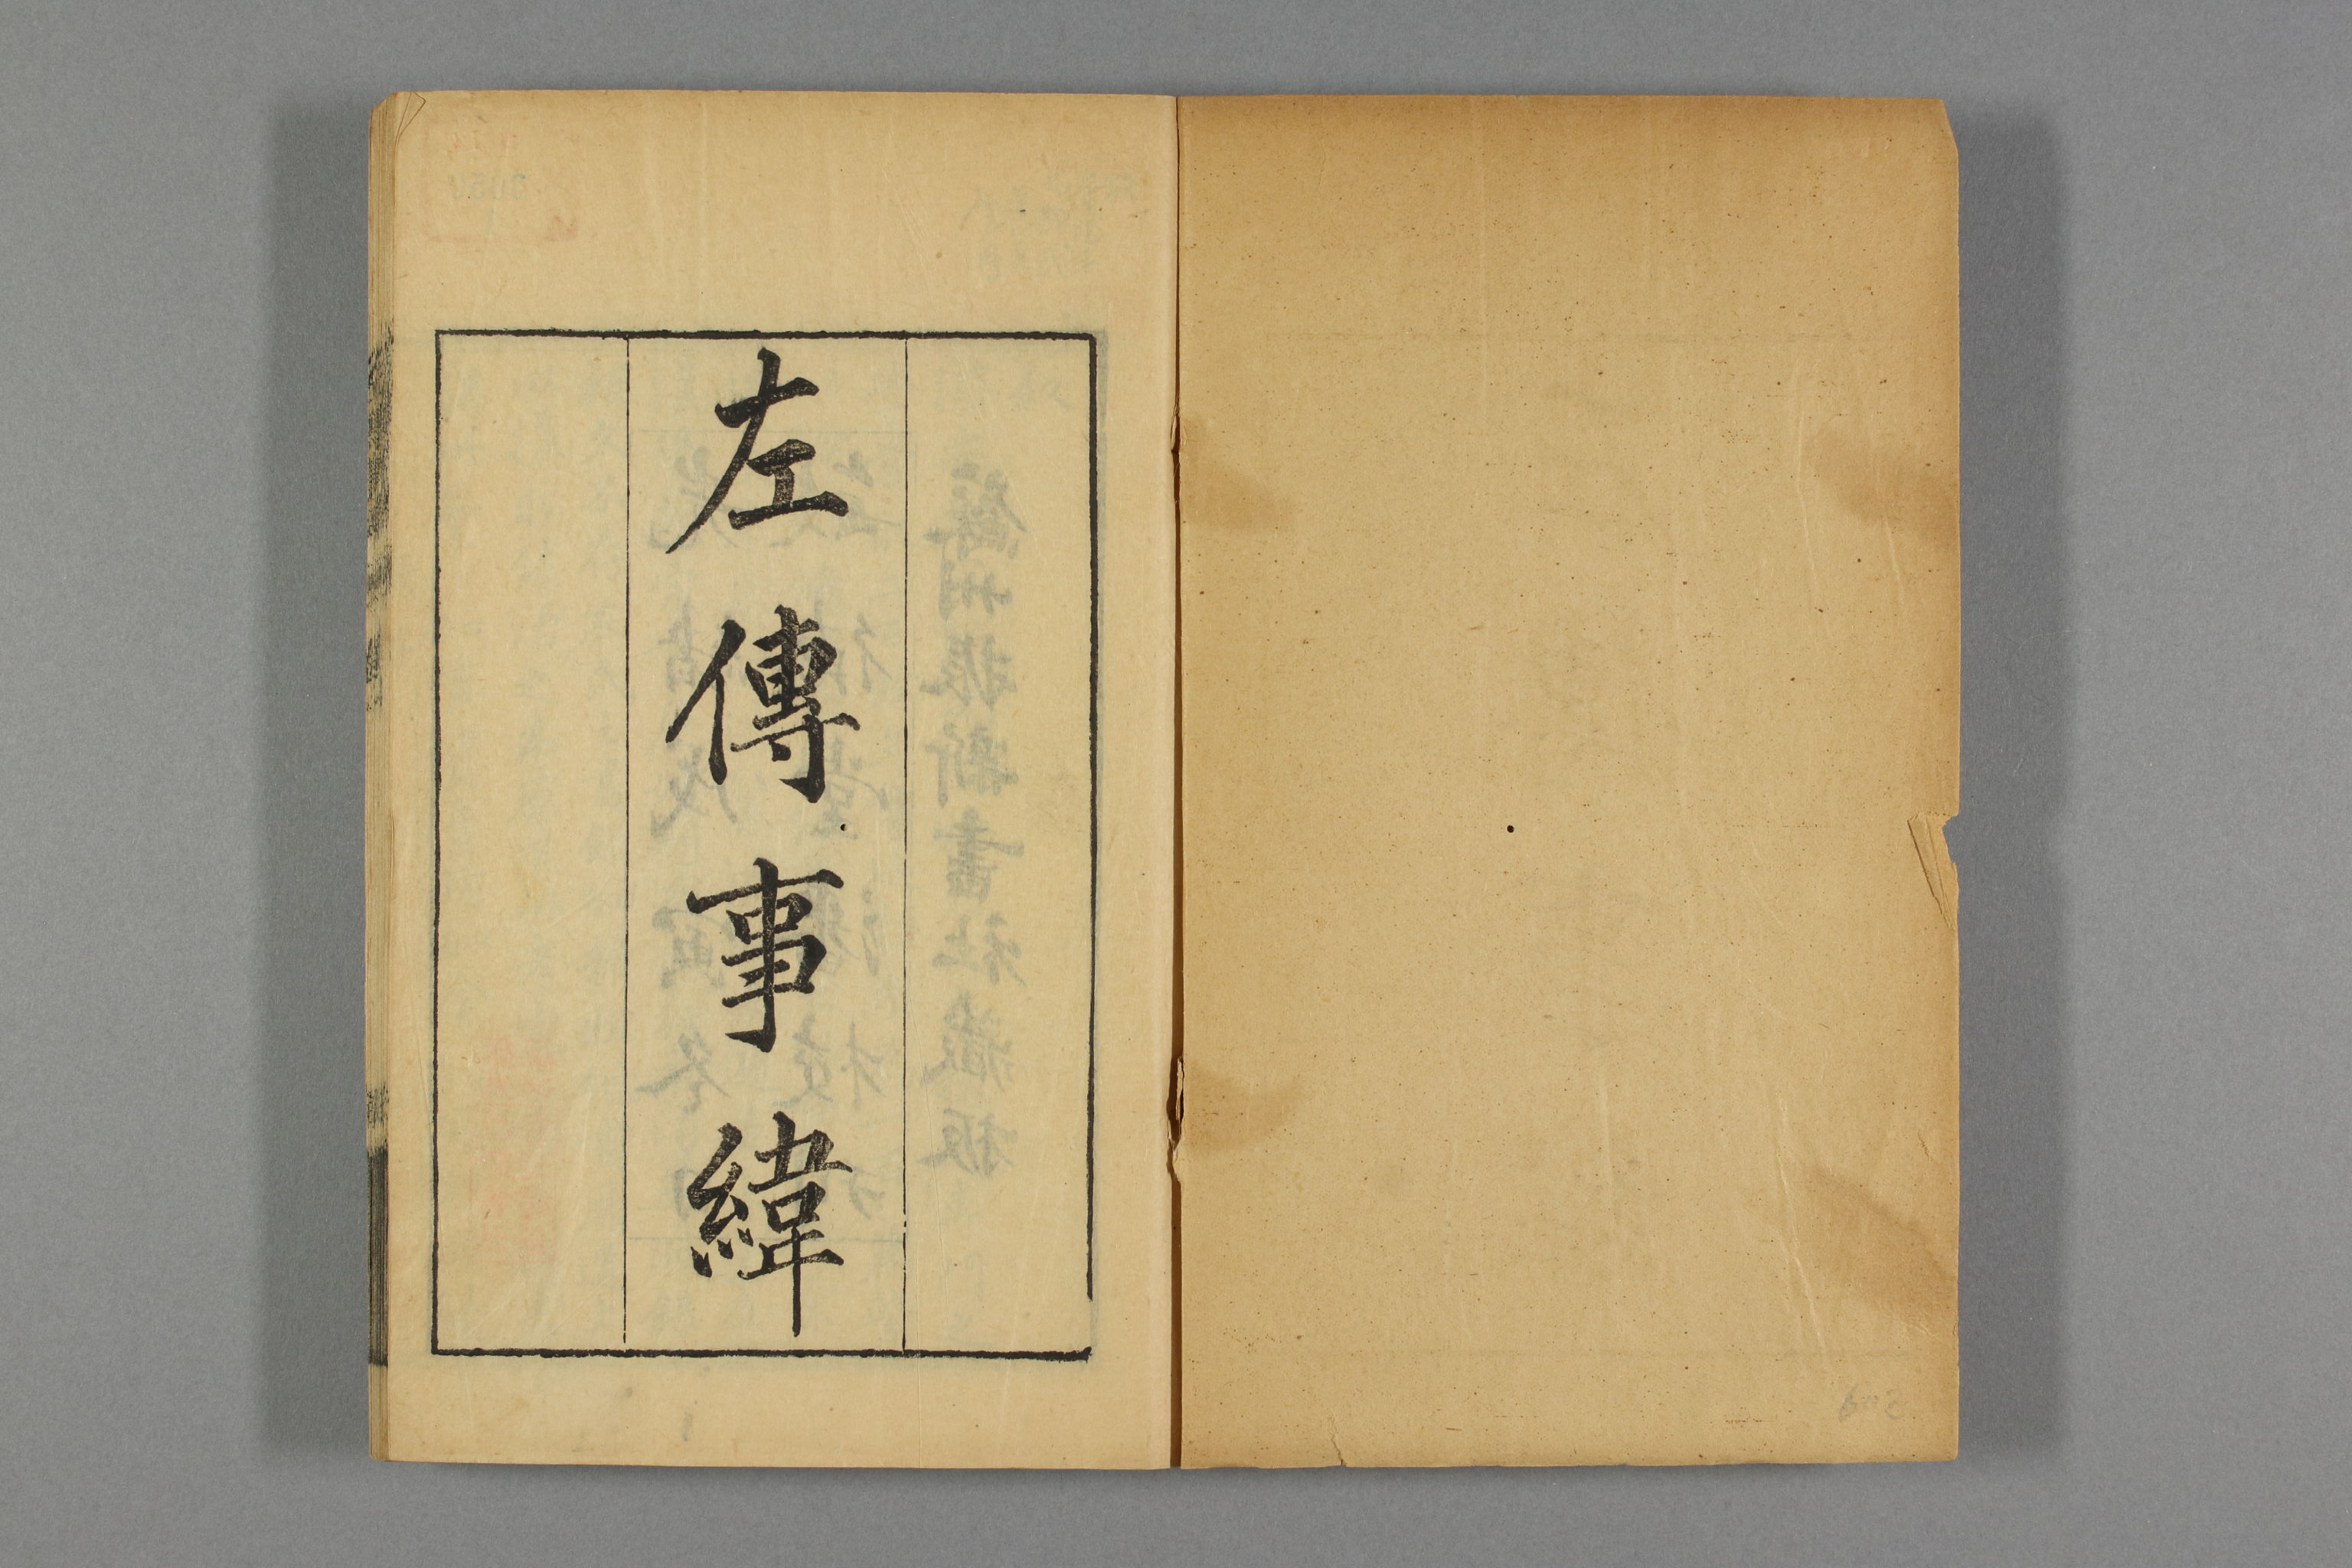 左傳事緯